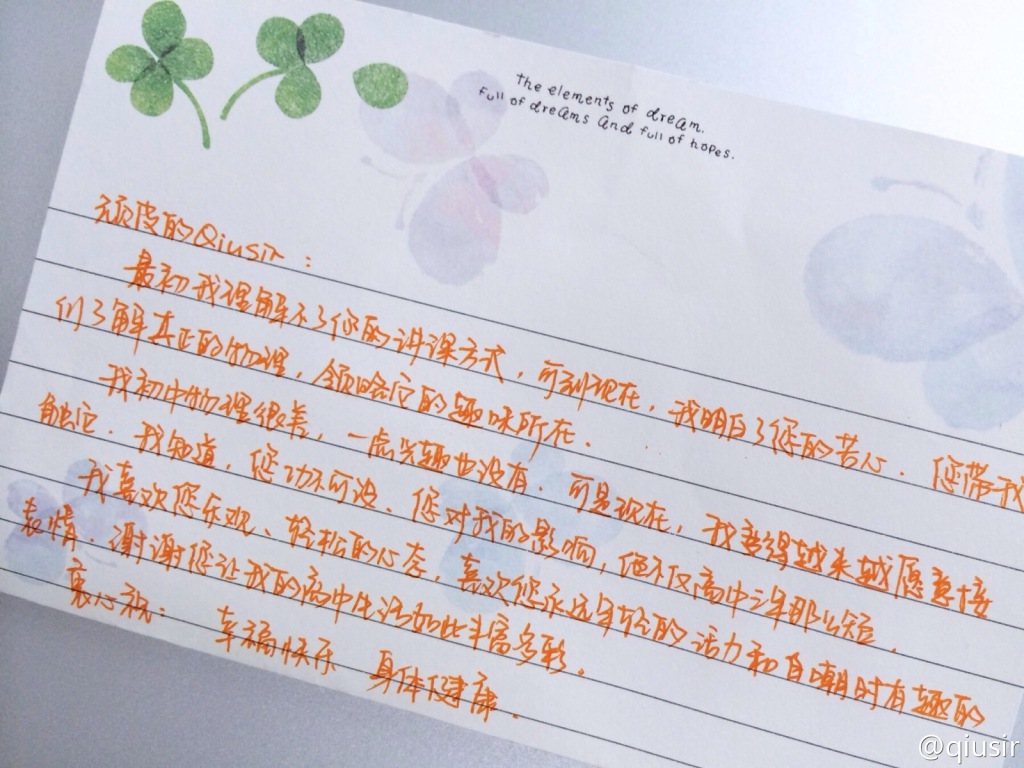 The elements of dream.
Full of dreams and full of hopes.
顽皮的Qiusir：
最初我理解不了你的讲课方式，可到现在，我明白了您的苦心．您带我
们了解真正的物理，领略它的趣味所在．
我初中物理很差，一点兴趣也没有．可是现在，我变得越来越愿意接
触它．我知道，您功不可没．您对我的影响，但不仅高中三年那么短．
我喜欢您乐观、轻松的心态，喜欢您永远年轻的活力和自嘲时有趣的
表情．谢谢您让我的高中生活如此丰富多彩。
衷心祝： 幸福快乐 身体健康．
@qiusir